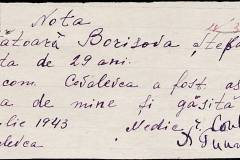 Nota
ătoară Borisova Ștefa
ta de 29 ani.
com. Cevalevca a fost as
a de mine și găsită
lie 1943 Medic
levca